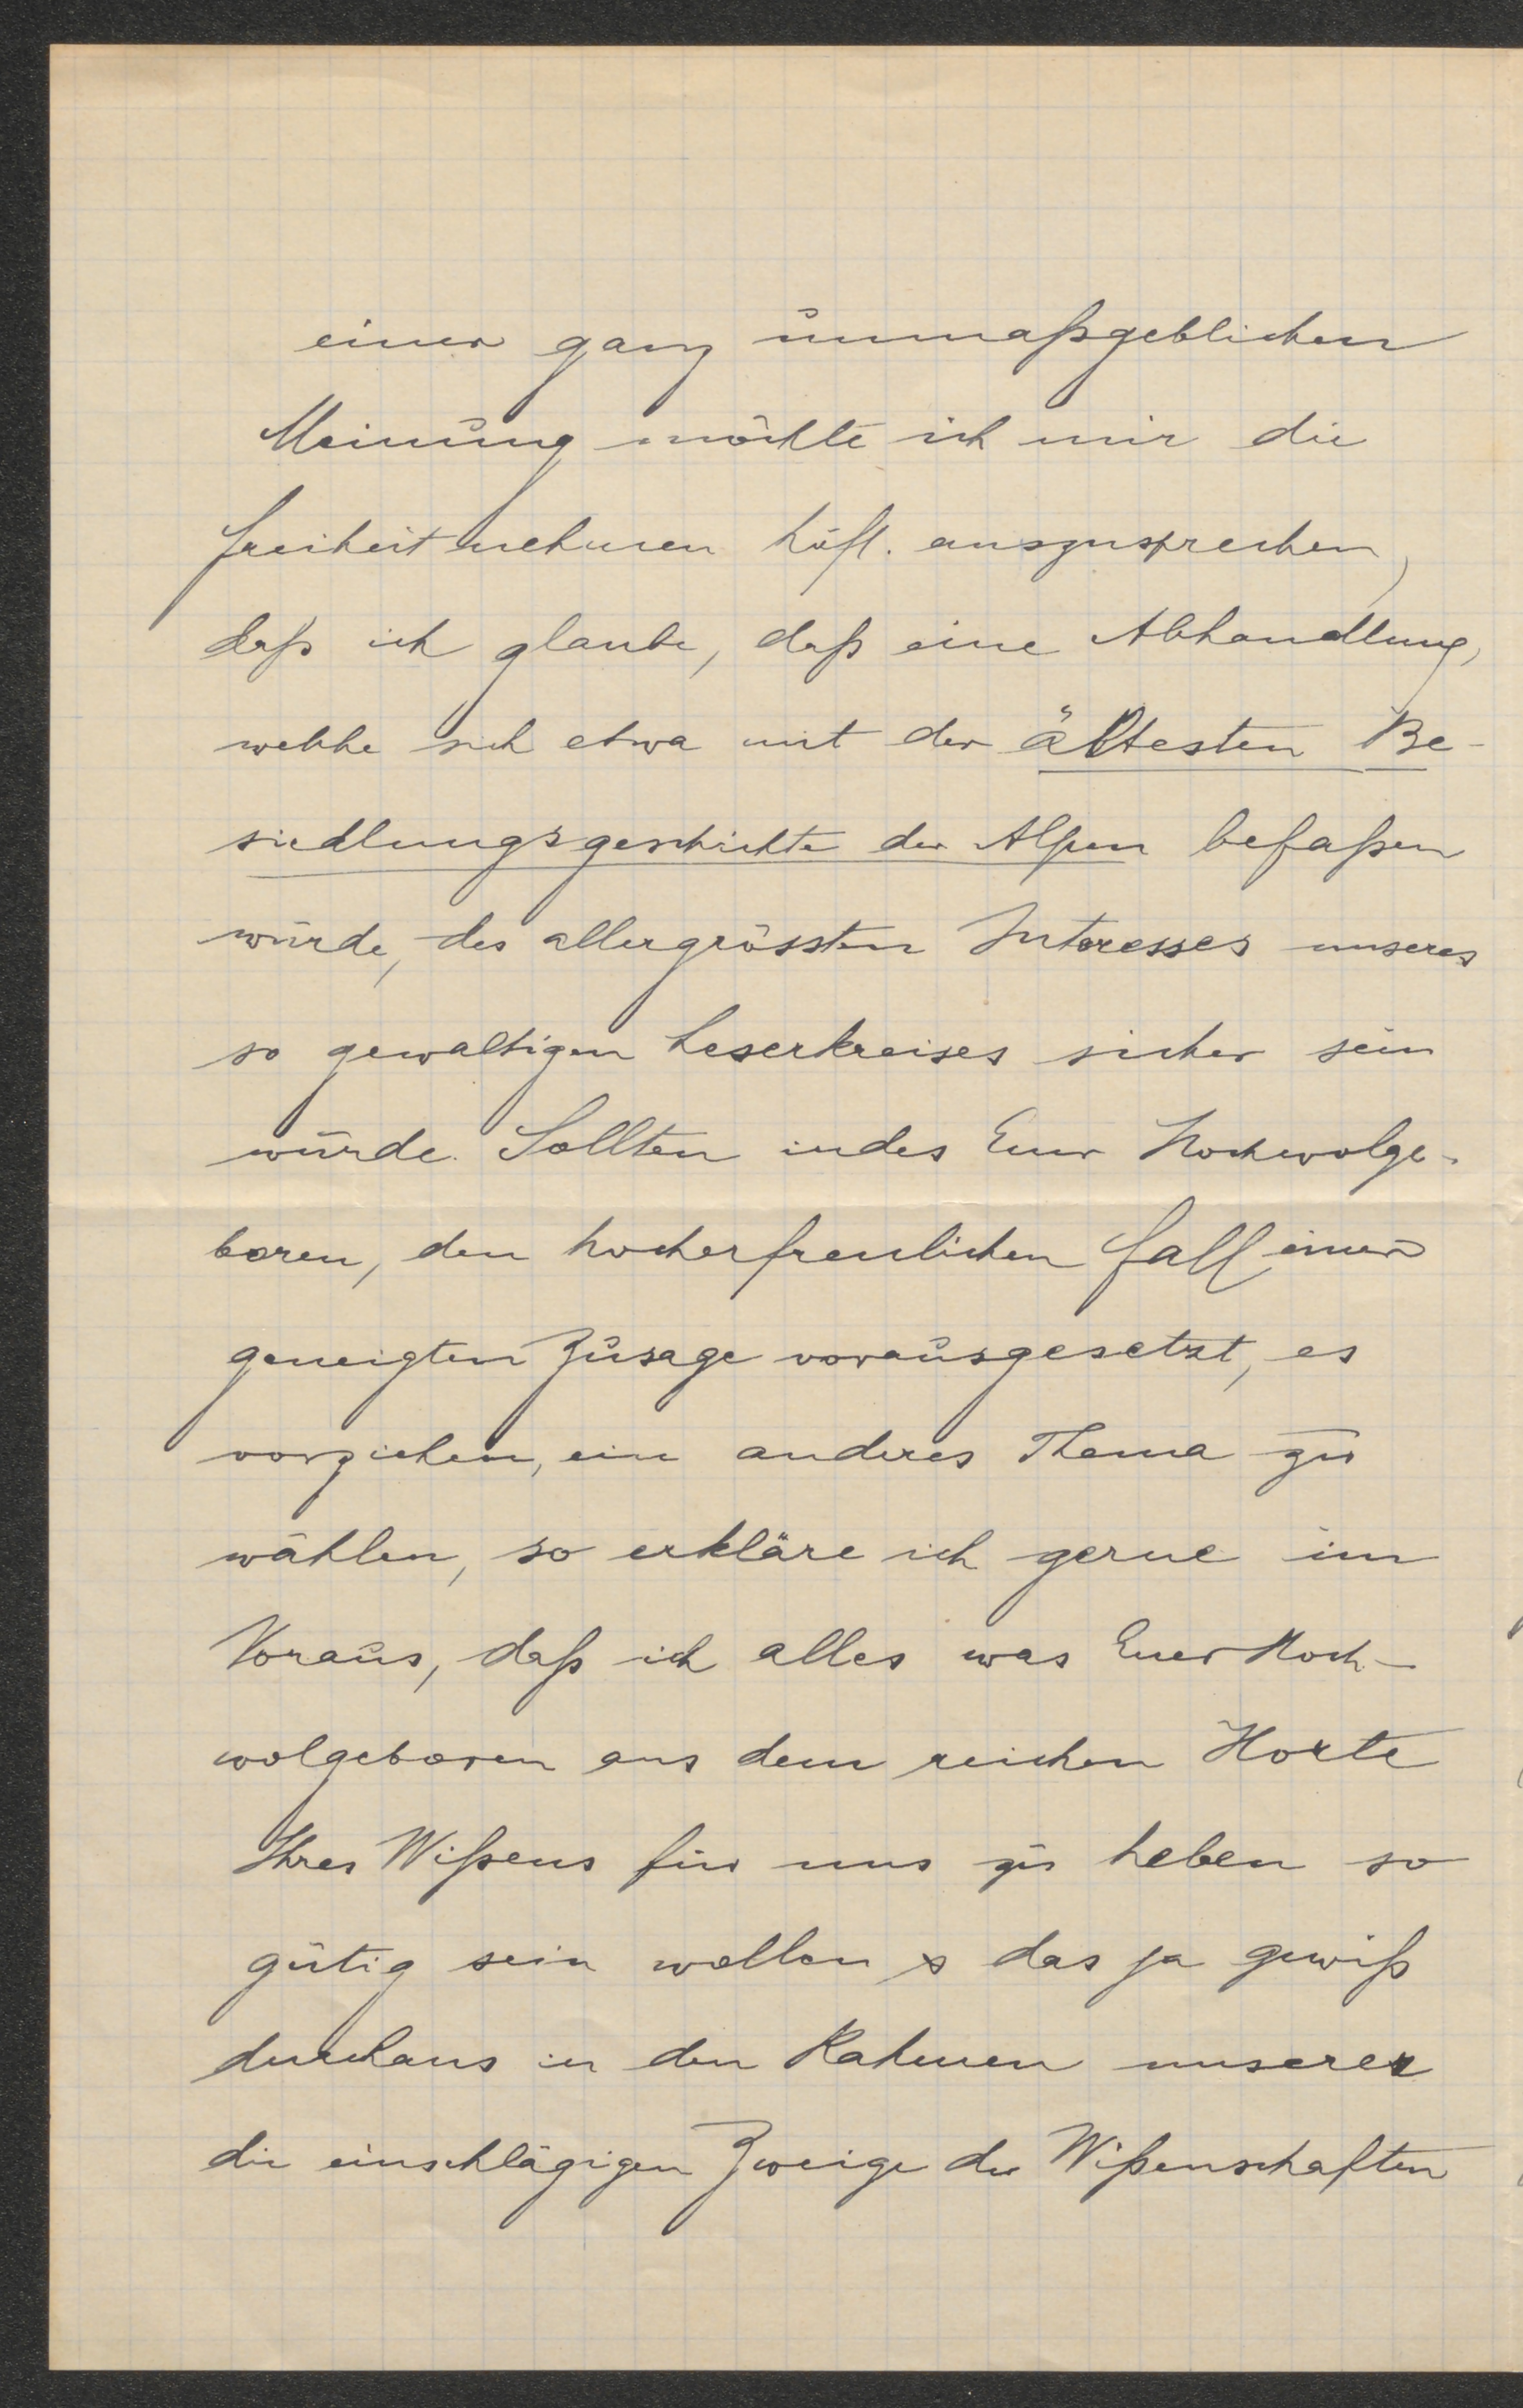 einer ganz unmaßgeblichen
Meinung möchte ich mir die
Freiheit nehmen höfl. auszusprechen,
daß ich glaube, daß eine Abhandlung,
welche sich etwa mit der ältesten Be-
siedlungsgeschichte der Alpen befaßen
würde, des allergrössten Interesses unseres
so gewaltigen Leserkreises sicher sein
würde. Sollten indes Euer Hochwolge-
boren, den hocherfreulichen Fall einer
geneigten Zusage vorausgesetzt, es
vorziehen, ein anderes Thema zu
wählen, so erkläre ich gerne im
Voraus, daß ich alles was Euer Hoch-
wolgeboren aus dem reichen Horte
Ihres Wißens für uns zu heben so
gütig sein wollen & das ja gewiß
durchaus in den Rahmen unserer
die einschlägigen Zweige der Wißenschaften